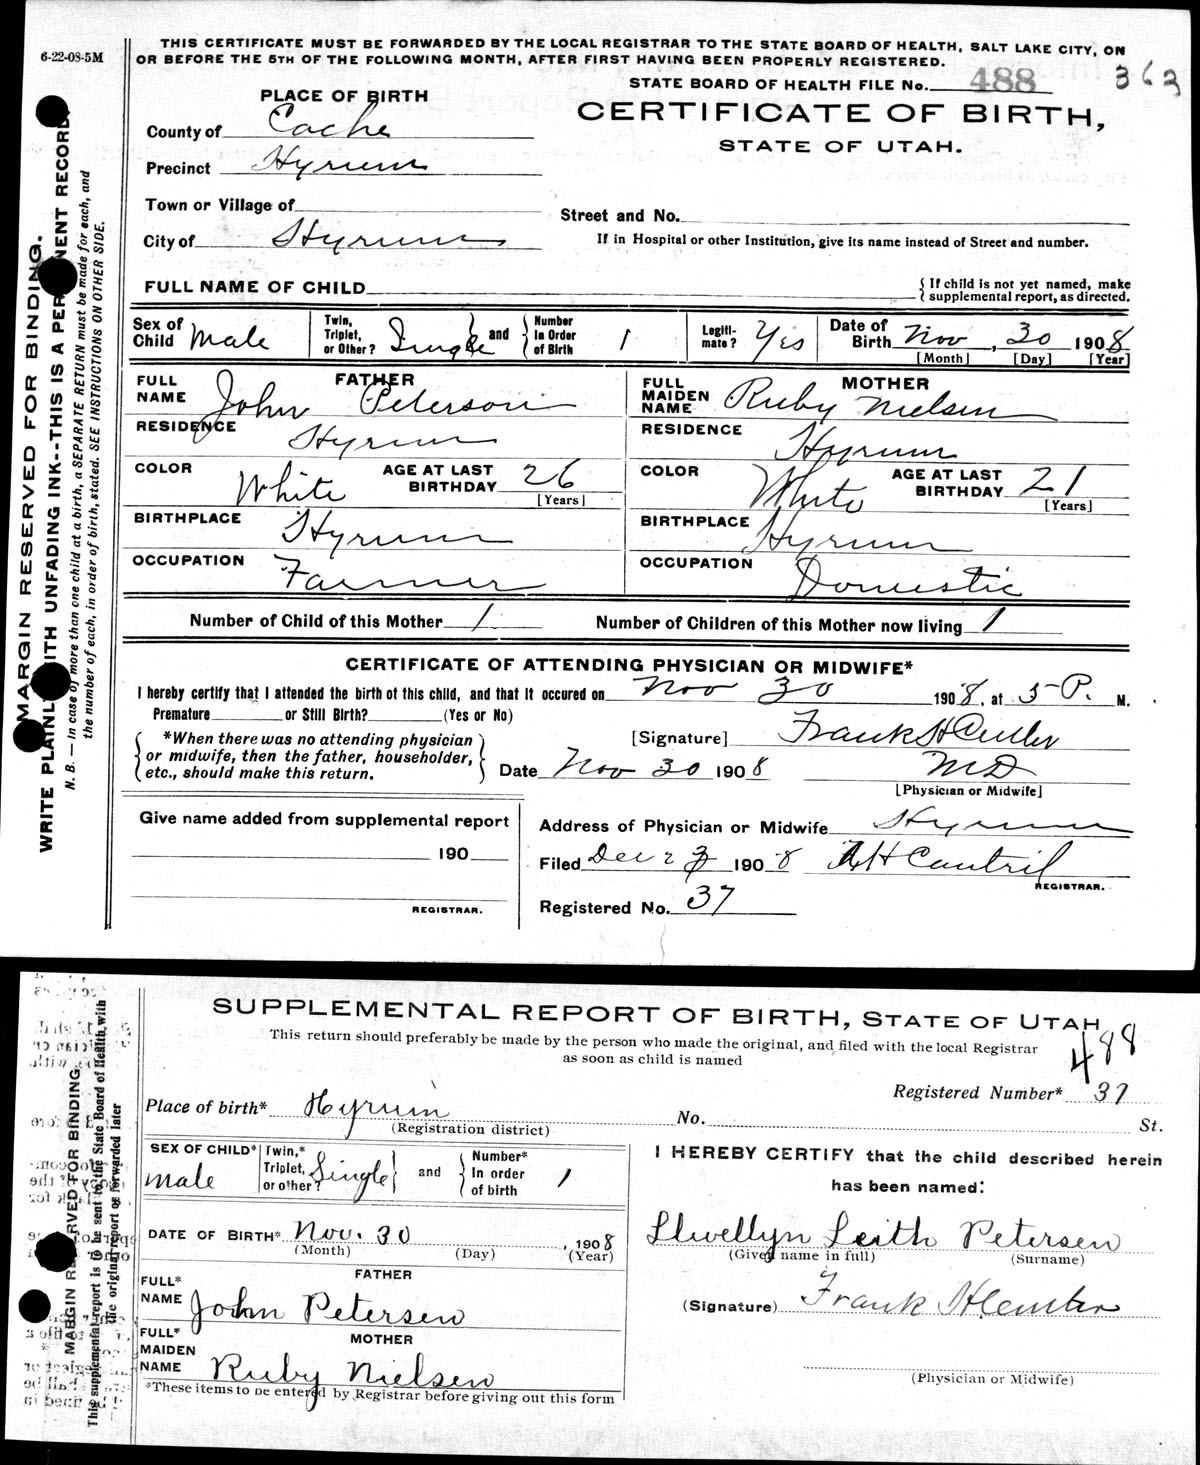 6-22-08-5M
THIS CERTIFICATE MUST BE FORWARDED BY THE LOCAL REGISTRAR TO THE STATE BOARD OF HEALTH, SALT LAKE CITY, ON
OR BEFORE THE 5TH OF THE FOLLOWING MONTH, AFTER FIRST HAVING BEEN PROPERLY REGISTERED.
STATE BOARD OF HEALTH FILE No. 488 363
PLACE OF BIRTH
CERTIFICATE OF BIRTH,
STATE OF UTAH.
County of Cache
Precinct Hyrum
Town or Village of
Street and No.
City of Hyrum
If in Hospital or other Institution, give its name instead of Street and number.
FULL NAME OF CHILD
{ If child is not yet named, make
supplemental report, as directed.
Sex of Child Male
Twin, Triplet, or Other? Single and Number In Order of Birth 1
Legiti-mate? Yes
Date of Birth Nov, 30 1908
[Month] [Day] [Year]
FATHER
FULL NAME John Peterson
MOTHER
FULL MAIDEN NAME Ruby Nielsen
RESIDENCE Hyrum
RESIDENCE Hyrum
COLOR White AGE AT LAST BIRTHDAY 26 [Years]
COLOR White AGE AT LAST BIRTHDAY 21 [Years]
BIRTHPLACE Hyrum
BIRTHPLACE Hyrum
OCCUPATION Farmer
OCCUPATION Domestic
Number of Child of this Mother 1 Number of Children of this Mother now living 1
CERTIFICATE OF ATTENDING PHYSICIAN OR MIDWIFE*
I hereby certify that I attended the birth of this child, and that it occured on Nov 30 1908, at 5 P. M.
Premature or Still Birth? (Yes or No)
*When there was no attending physician
or midwife, then the father, householder,
etc., should make this return.
[Signature] Frank H
Date Nov 30 1908 MD
[Physician or Midwife]
Give name added from supplemental report
190
REGISTRAR.
Address of Physician or Midwife Hyrum
Filed Dec 1908 H Cantril
REGISTRAR.
Registered No. 37
MARGIN RESERVED FOR BINDING.
WRITE PLAINLY WITH UNFADING INK--THIS IS A PERMANENT RECORD.
N. B. — In case of more than one child at a birth, a SEPARATE RETURN must be made for each, and
the number of each, in order of birth, stated. SEE INSTRUCTIONS ON OTHER SIDE.
SUPPLEMENTAL REPORT OF BIRTH, STATE OF UTAH
This return should preferably be made by the person who made the original, and filed with the local Registrar
as soon as child is named
488
Registered Number* 37
Place of birth* Hyrum No. St.
(Registration district)
SEX OF CHILD* Male
Twin,* Triplet, or other? Single and Number* In order of birth 1
I HEREBY CERTIFY that the child described herein
has been named:
DATE OF BIRTH* Nov. 30, 1908
(Month) (Day) (Year)
Llwellyn Leith Petersen
(Given name in full) (Surname)
FATHER
FULL* NAME John Petersen
(Signature) Frank H
MOTHER
FULL* MAIDEN NAME Ruby Nielsen
(Physician or Midwife)
*These items to be entered by Registrar before giving out this form
MARGIN RESERVED FOR BINDING
This supplemental report is to be sent to the State Board of Health with
the original report or forwarded later